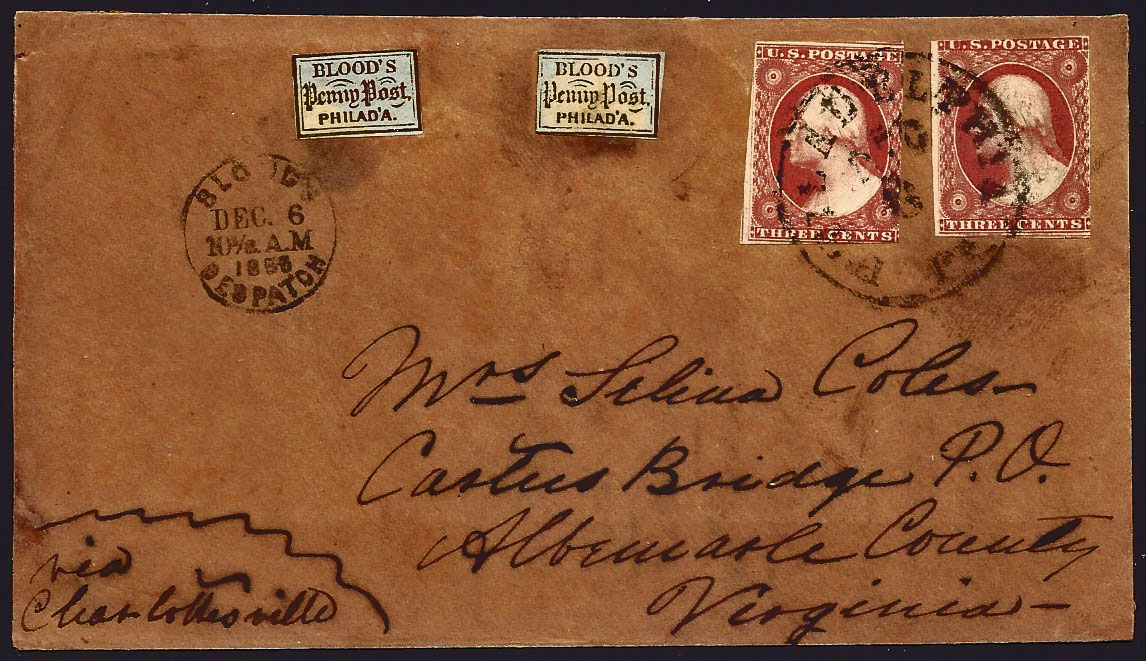 BLOOD'S
Penny Post,
PHILAD'A.
BLOOD'S
Penny Post,
PHILAD'A.
U.S. POSTAGE
THREE CENTS
U.S. POSTAGE
THREE CENTS
PHILADELPHIA
BLOOD'S
DEC. 6
10½ A.M
DESPATCH
Mrs Selina Coles
Carters Bridge P.O.
Albemarle County
Virginia
via
Charlottesville